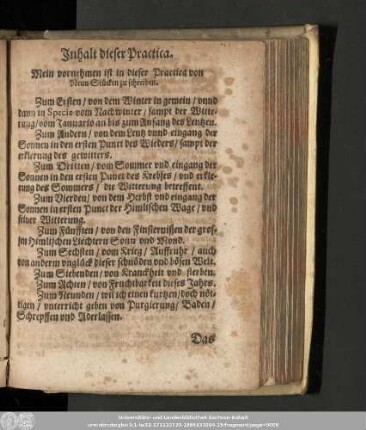 Inhalt dieser Practica.
Mein vornehmen ist in dieser Practica von
Neun Stücken zu schreiben.
Zum Ersten / von dem Winter in gemein / vnnd
dann in Specie vom Nachwinter / sampt der Witte-
rung / vom Januario an bis zum Anfang des Lentzen.
Zum Andern / von dem Lentz vnnd eingang der
Sonnen in den ersten Punct des Wieders / sampt der
erklerung des gewitters.
Zum Dritten / von Sommer vnd eingang der
Sonnen in den ersten Punct des Krebses / vnd erkle-
rung des Sommers / die Witterung betreffent.
Zum Vierden / von dem Herbst vnd eingang der
Sonnen in ersten Punct der Himlischen Wage / vnd
seiner Witterung.
Zum Fünfften / von den Finsternissen der gros-
sen Himlischen Liechtern Sonn vnd Mond.
Zum Sechsten / vom Krieg / Auffruhr / auch
von anderm vnglück dieser schnöden vnd bösen Welt.
Zum Siebenden / von Kranckheit vnd sterben.
Zum Achten / von Fruchtbarkeit dieses Jahrs.
Zum Neunden / wil ich einen kurtzen / doch nöt-
tigen / vnterricht geben von Purgierung / Baden /
Schrepffen vnd Aderlassen.
Das
Universitäts- und Landesbibliothek Sachsen-Anhalt